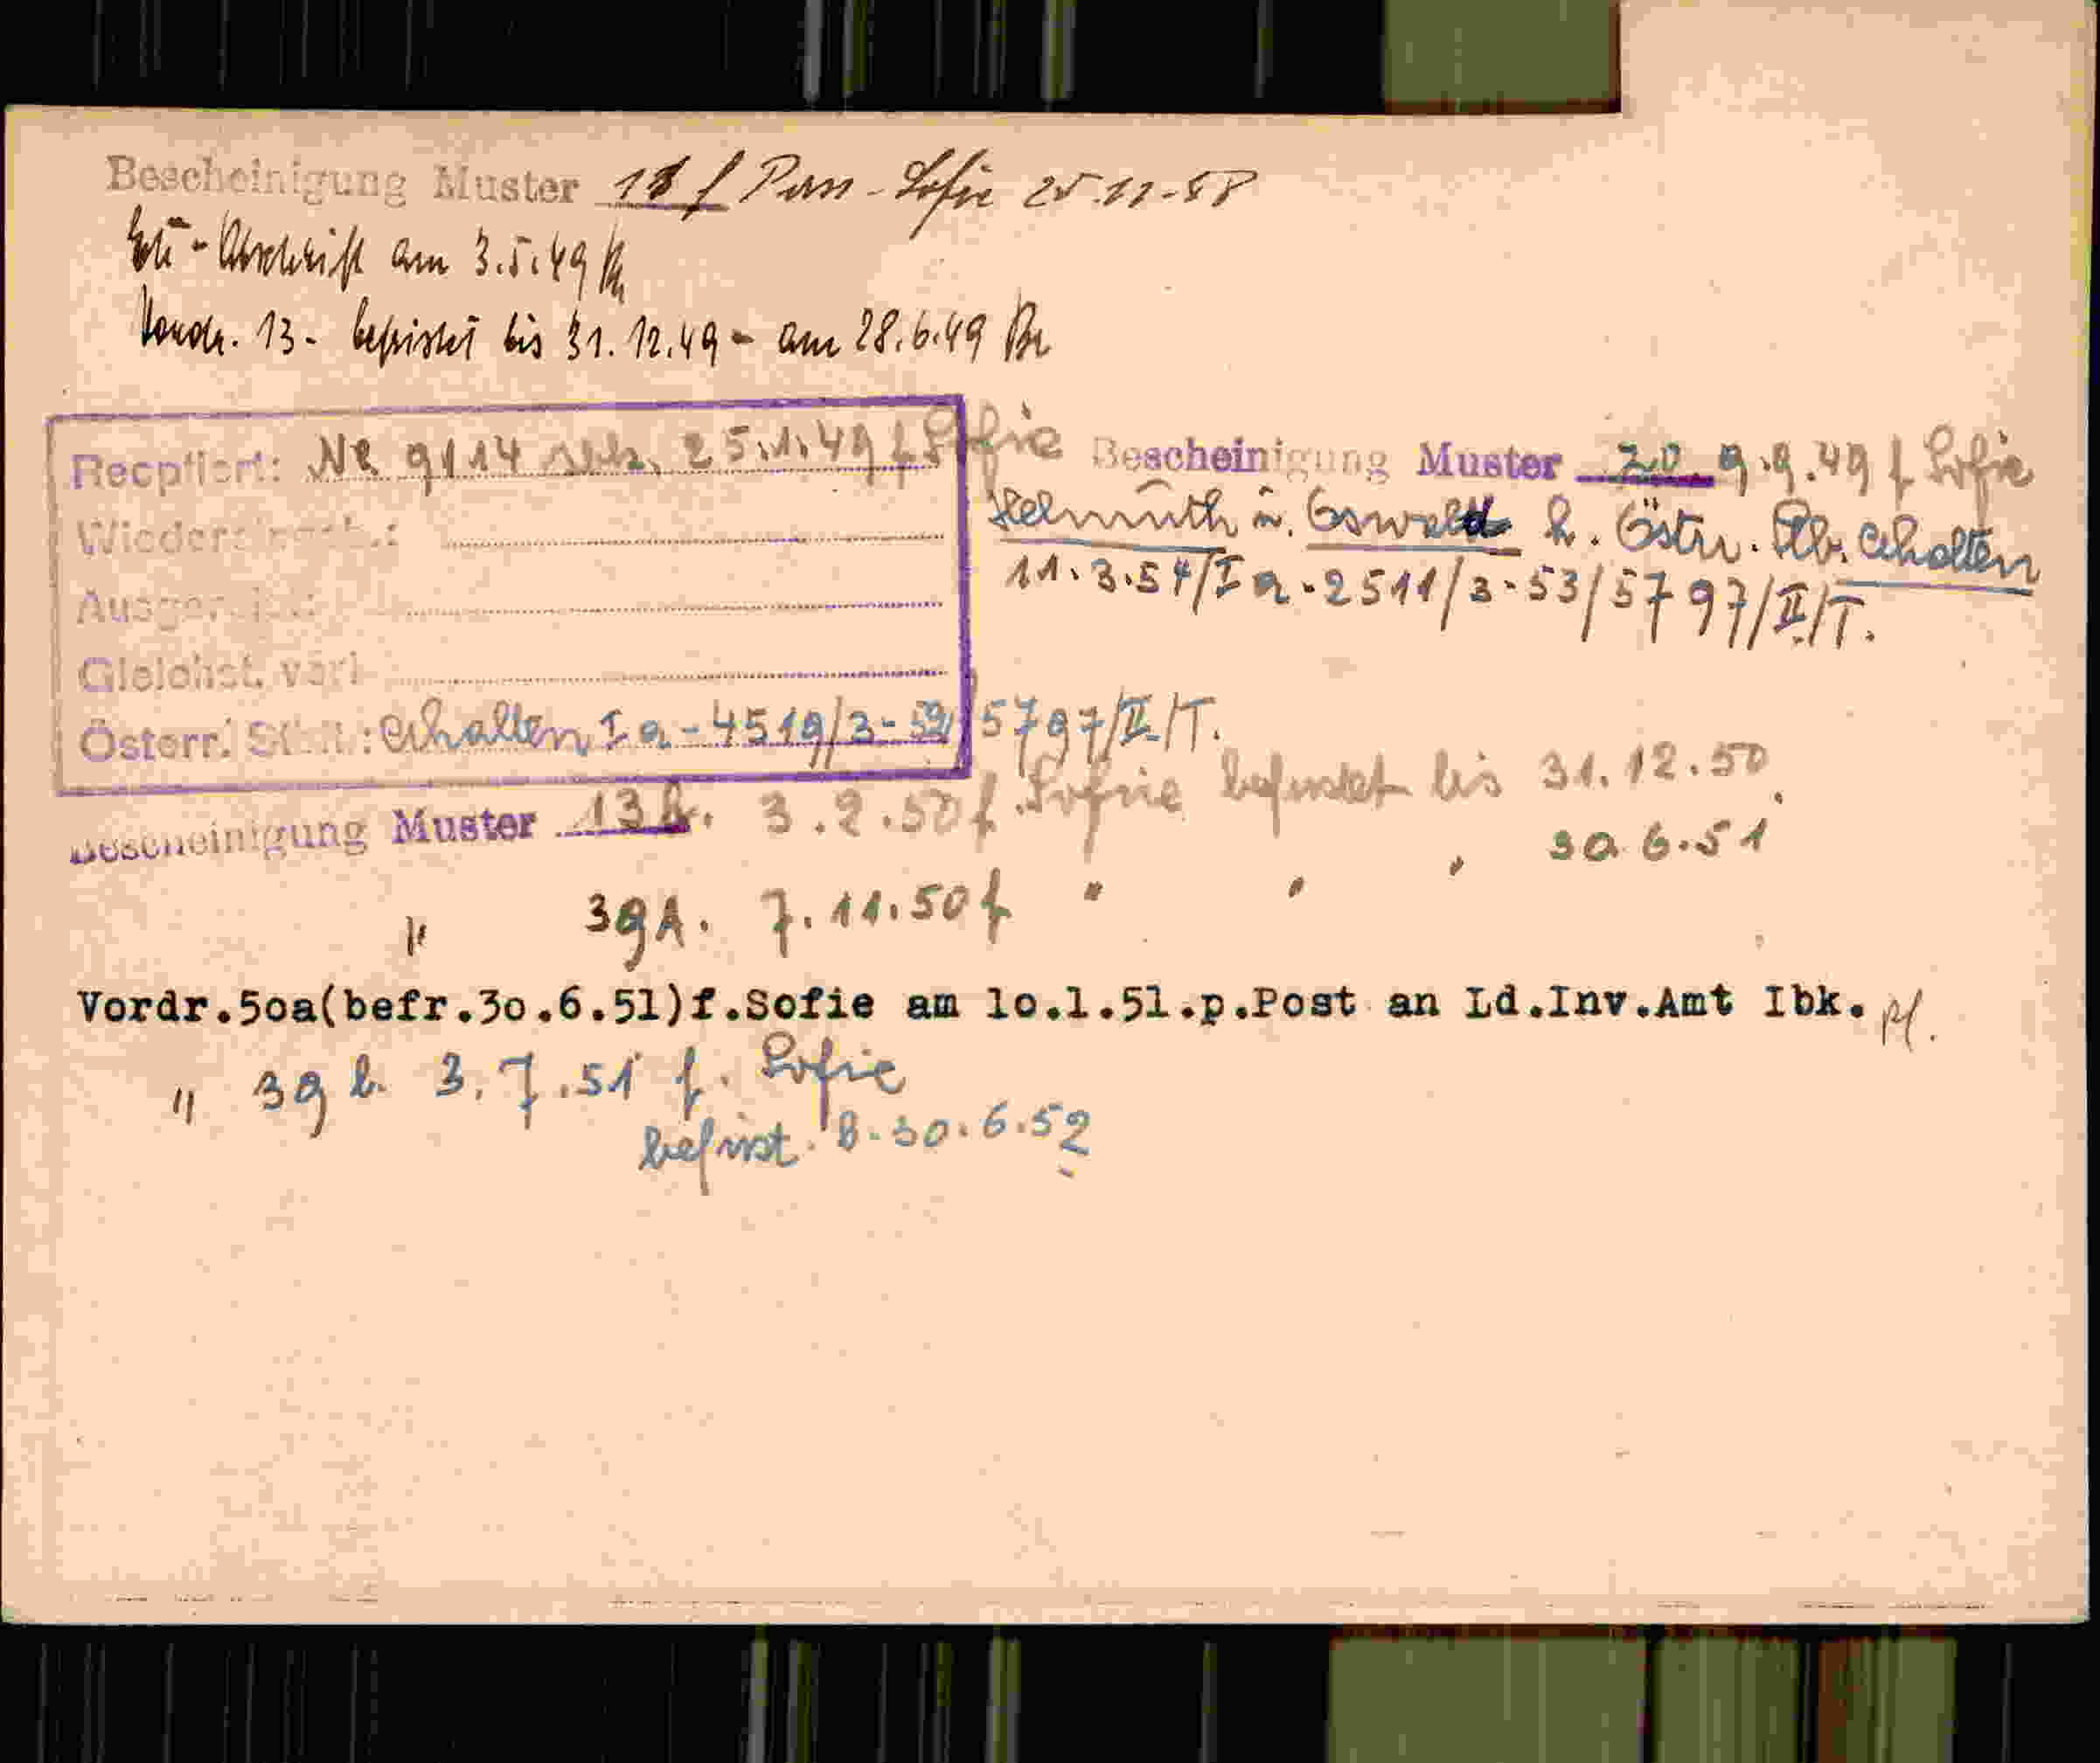 Bescheinigung Muster 11 f Pass - Sofie 25.11.
Abschrift am 3.5.49
Vordr. 13 - befristet bis 31.12.49 - am 28.6.49 Br
Recptiert: NR 9114 25.1.49 f Sofie
Österr. : erhalten I a - 4519/3-53/5797/II/T.
Bescheinigung Muster 20. 9.9.49 f Sofie
Helmuth u. Oswald h. Östrr. Stb. erhalten
11.3.54/I a - 2511/3-53/5797/II/T.
Bescheinigung Muster 13b. 3.2.50 f. Sofie befristet bis 31.12.50.
" 39A. 7.11.50 f " " " 30.6.51
Vordr.5oa(befr.3o.6.51)f.Sofie am lo.l.51.p.Post an Ld.Inv.Amt Ibk. pf.
" 39 b. 3.7.51 f. Sofie
befrist. b. 30.6.52